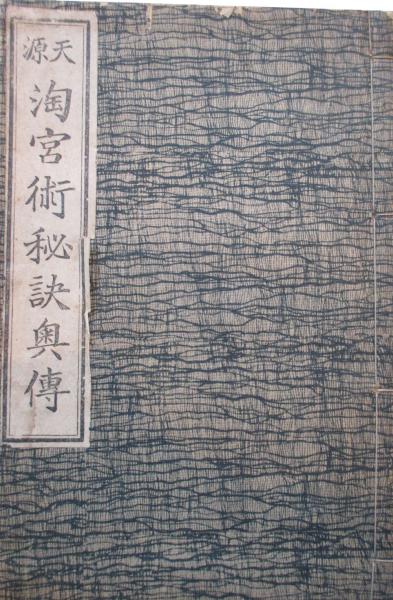 天源
淘宮術秘訣奥傳